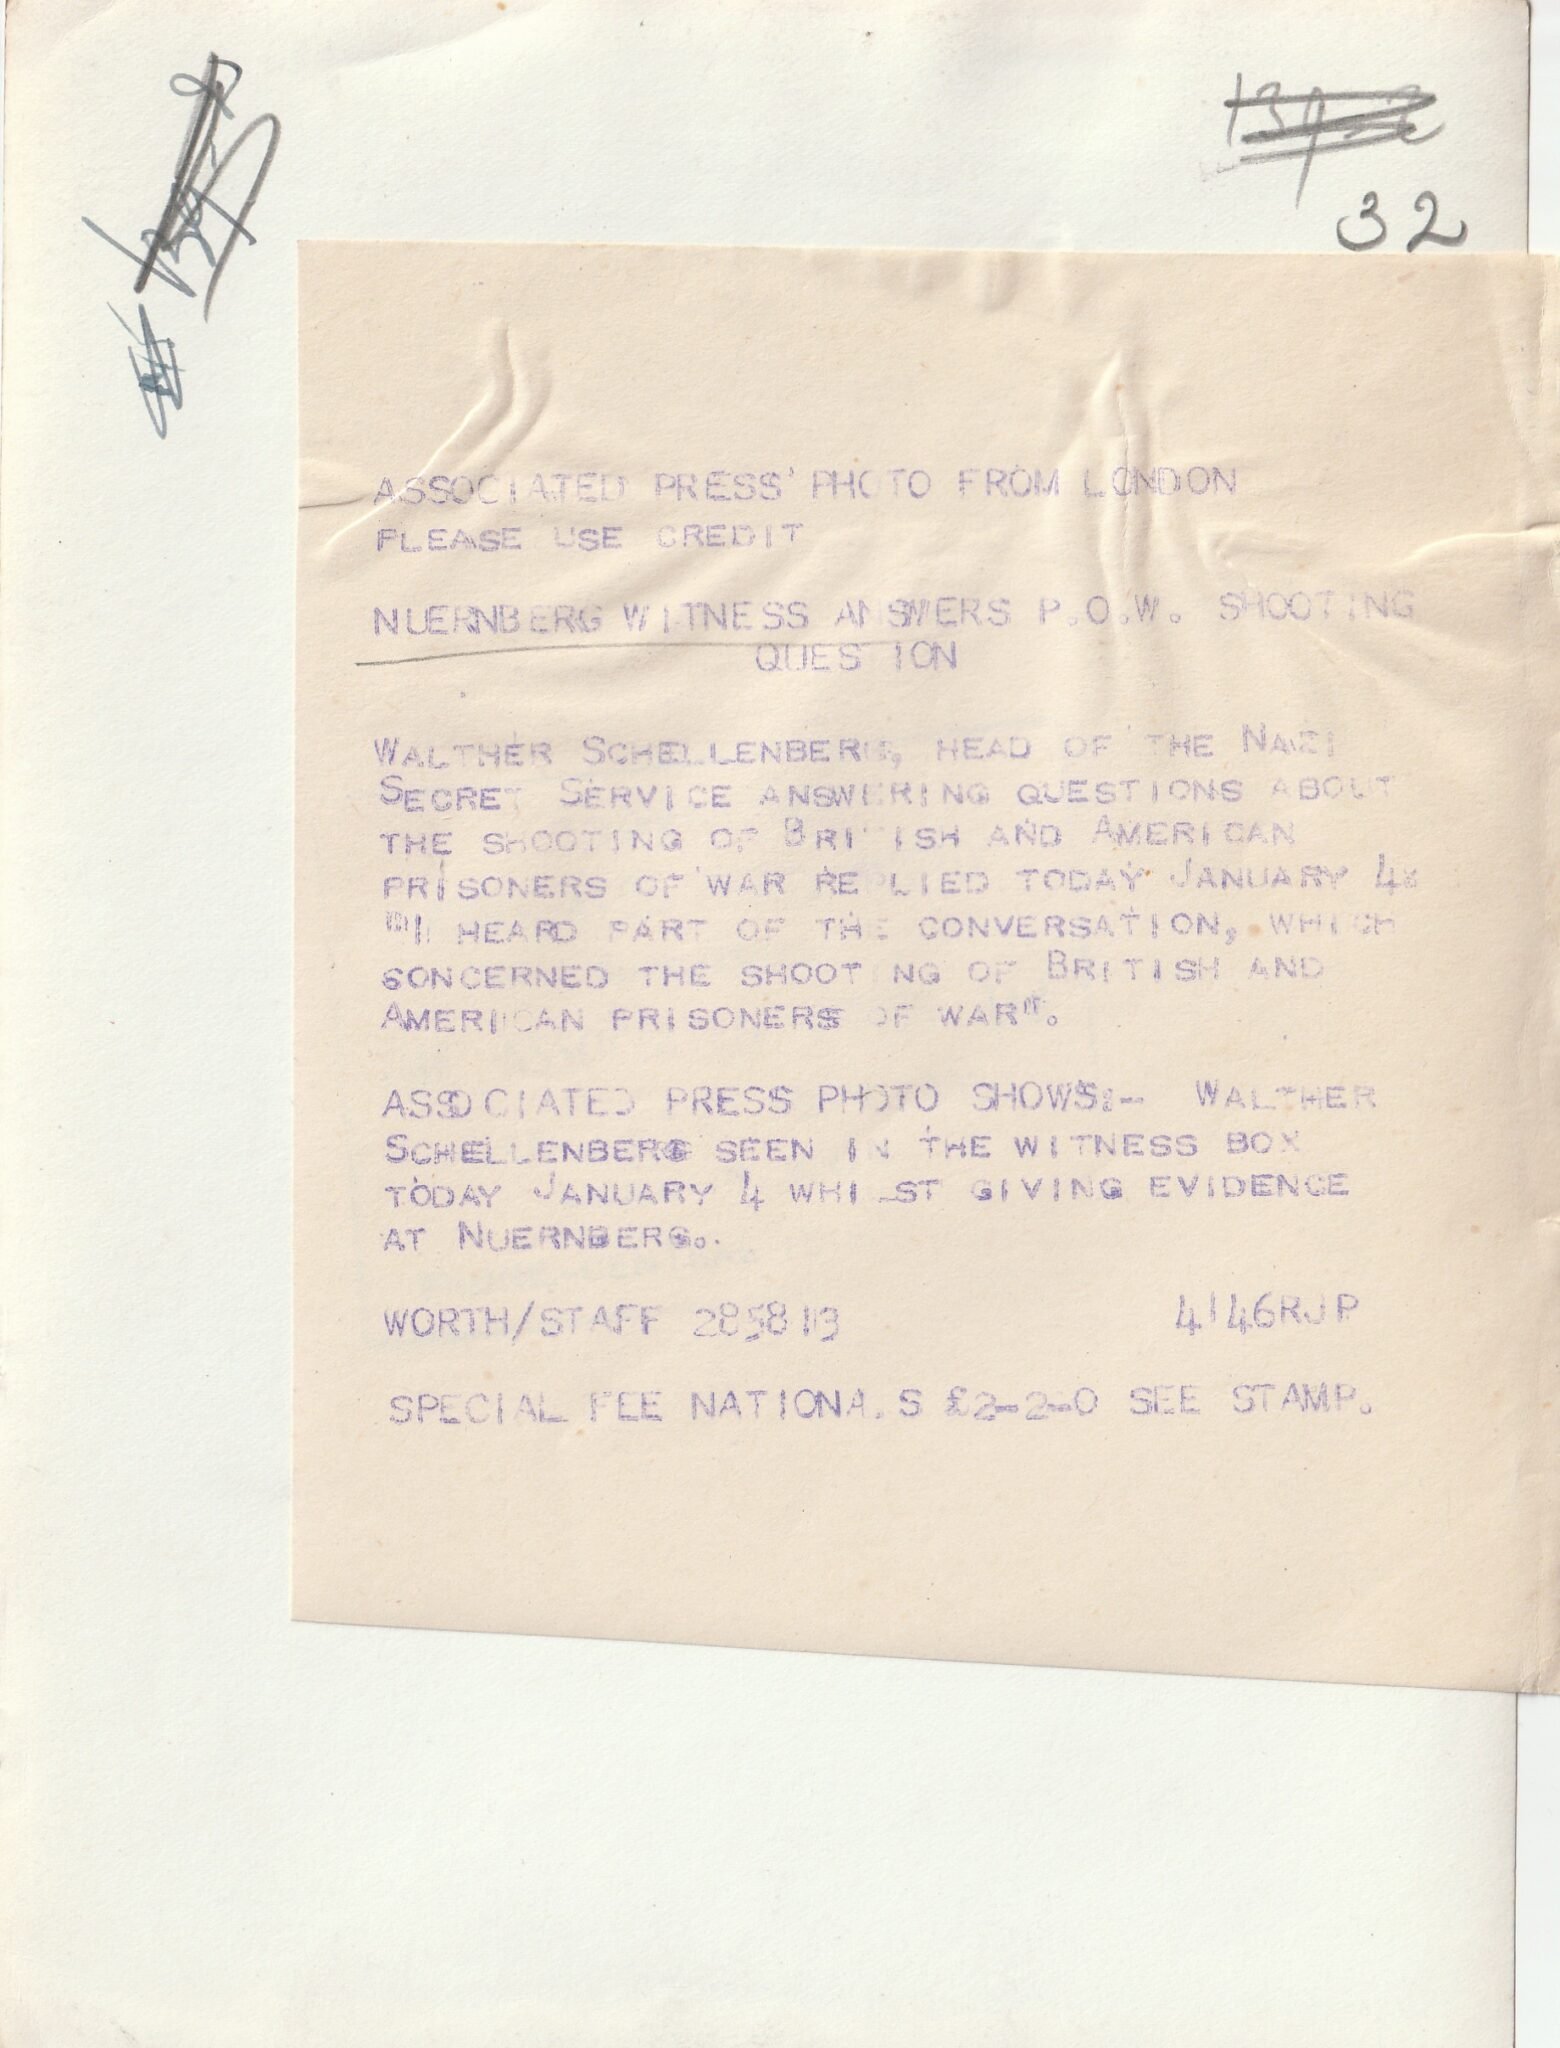 32
ASSOCIATED PRESS PHOTO FROM LONDON
PLEASE USE CREDIT
NUERNBERG WITNESS ANSWERS P.O.W. SHOOTING
QUESTION
WALTHER SCHELLENBERG, HEAD OF THE NAZI
SECRET SERVICE ANSWERING QUESTIONS ABOUT
THE SHOOTING OF BRITISH AND AMERICAN
PRISONERS OF WAR REPLIED TODAY JANUARY 4:
"I HEARD PART OF THE CONVERSATION, WHICH
CONCERNED THE SHOOTING OF BRITISH AND
AMERICAN PRISONERS OF WAR".
ASSOCIATED PRESS PHOTO SHOWS:- WALTHER
SCHELLENBERG SEEN IN THE WITNESS BOX
TODAY JANUARY 4 WHILST GIVING EVIDENCE
AT NUERNBERG.
WORTH/STAFF 4146RJP
SPECIAL FEE NATIONALS £2-2-0 SEE STAMP.